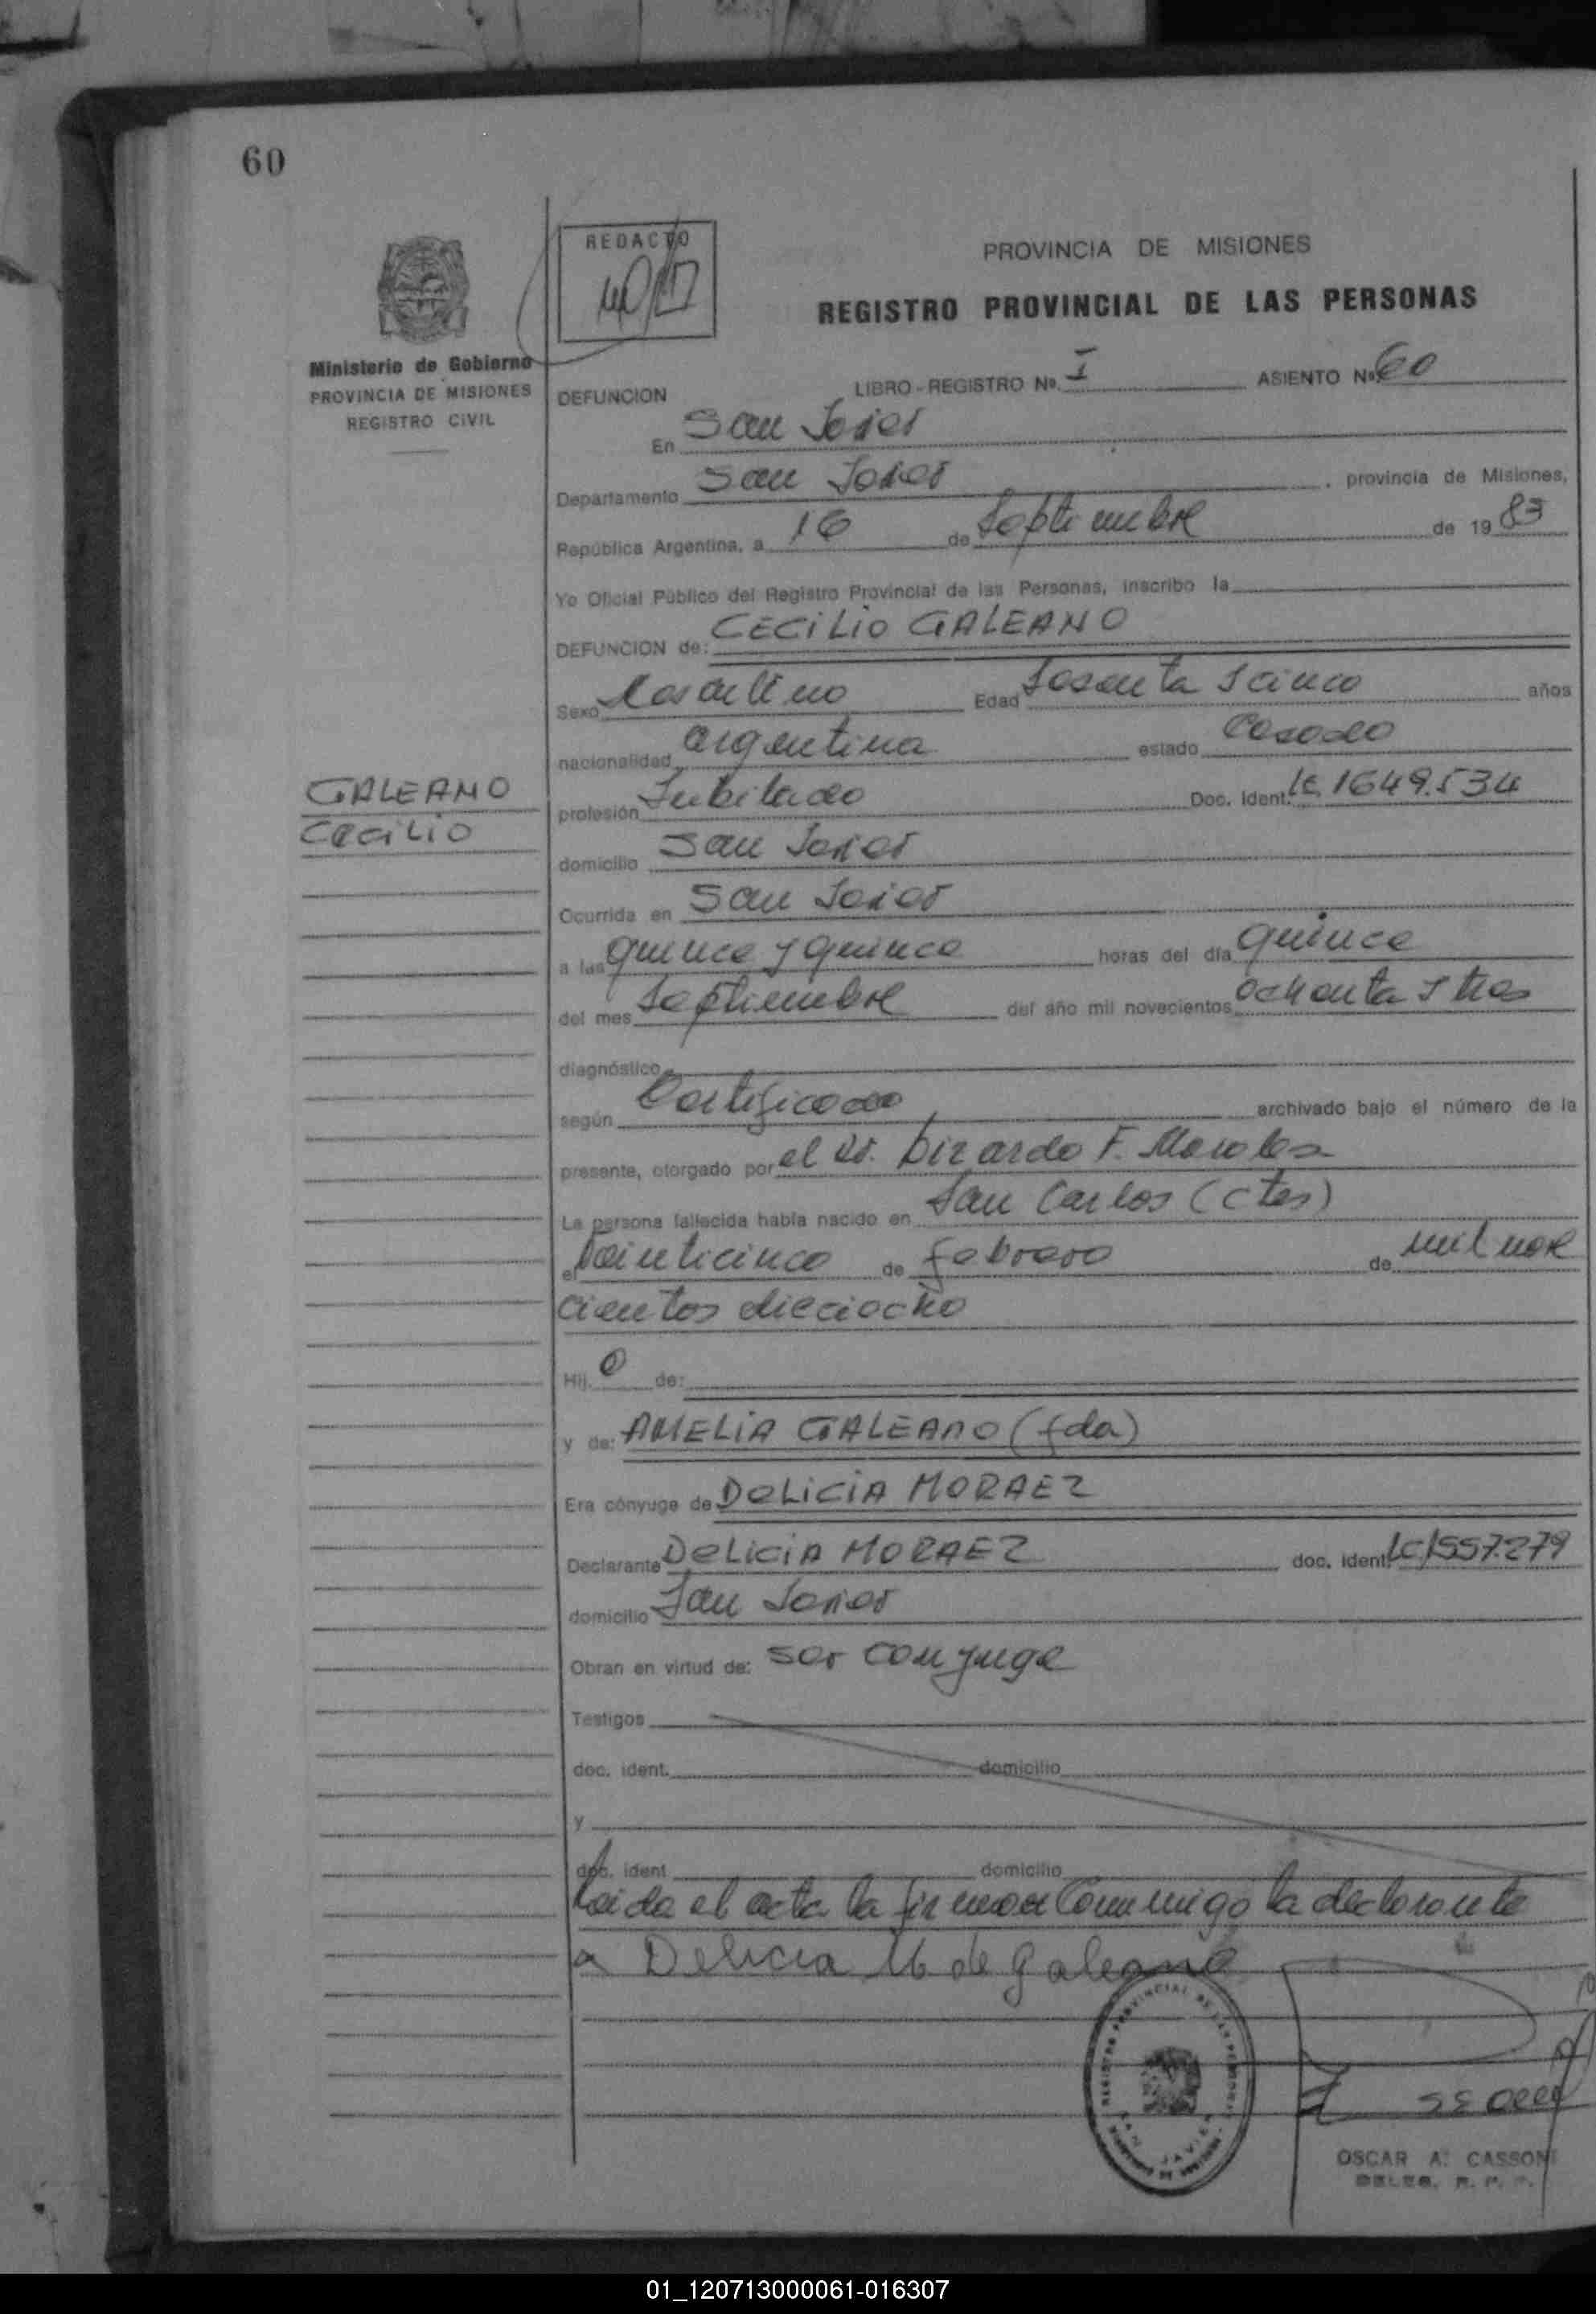 60
REDACTO
PROVINCIA DE MISIONES
REGISTRO PROVINCIAL DE LAS PERSONAS
Ministerio de Gobierno
PROVINCIA DE MISIONES
REGISTRO CIVIL
LIBRO - REGISTRO Nº. I ASIENTO Nº 60
DEFUNCION
En San Javier
Departamento San Javier, provincia de Misiones,
República Argentina, a 16 de Septiembre de 1983
Yo Oficial Público del Registro Provincial de las Personas, inscribo la
DEFUNCION de: CECILIO GALEANO
Sexo Masculino Edad Sesenta y cinco años
nacionalidad argentina estado Casado
GALEANO
CECILIO
profesión Jubilado Doc. Ident. LE 1649.534
domicilio San Javier
Ocurrida en San Javier
a las quince y quince horas del día quince
del mes Septiembre del año mil novecientos ochenta y tres
diagnóstico
según Certificado archivado bajo el número de la
presente, otorgado por el Dr. F. Morales
La persona fallecida había nacido en San Carlos (Ctes)
el veinticinco de febrero de mil nove
cientos dieciocho
Hij o de:
y de: AMELIA GALEANO (fda)
Era cónyuge de DELICIA MORAEZ
Declarante DELICIA MORAEZ doc. ident. LC 1557.279
domicilio San Javier
Obran en virtud de: ser conyuge
Testigos
doc. ident. domicilio
y
doc. ident domicilio
Leida el acta la firma conmigo la declarante
Delicia M de Galeano
REGISTRO PROVINCIAL DE LAS PERSONAS
SAN JAVIER
OSCAR A. CASSONI
DELEG. R. P. P.
01_120713000061-016307